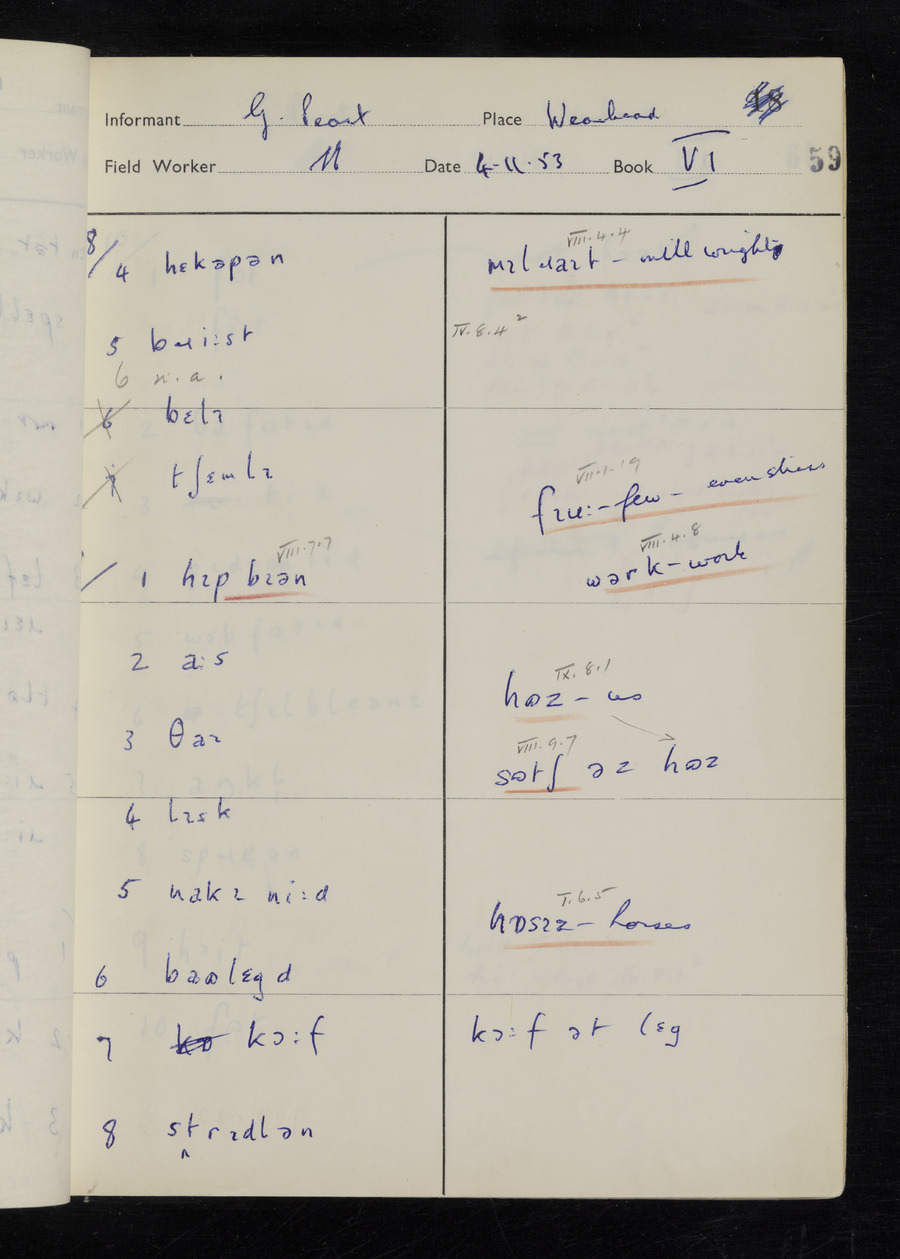 Informant G. Peart Place Wearhead
Field Worker Date 4-11-53 Book VI 59
8/4 hɛkəpən
VIII.4.4
mɪlɹaɪt - mill wright
5 bɹi:st
IV.8.4²
6 n.a.
6 bɛlɪ
7 tʃɛmlɪ
VII.1.19
fɪu: - few -
VIII.7.7
/ 1 hɪp bɪən
VIII.4.8
wərk - work
2 a:s
IX.8.1
həz - us
3 θaɪ
VIII.9.7
sətʃ əz həz
4 lɪsk
5 nakɪ ni:d
I.6.5
hɒsɪz - horses
6 bəʊlɛgd
7 kɔ:f
kɔ:f ət lɛg
8 strɪdlən